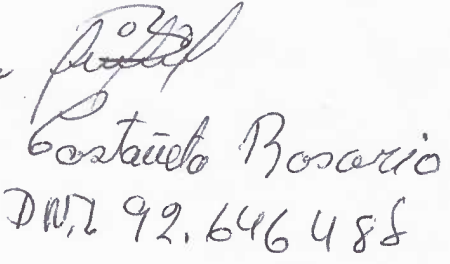 Costañeda Rosario
DNI 92.646488